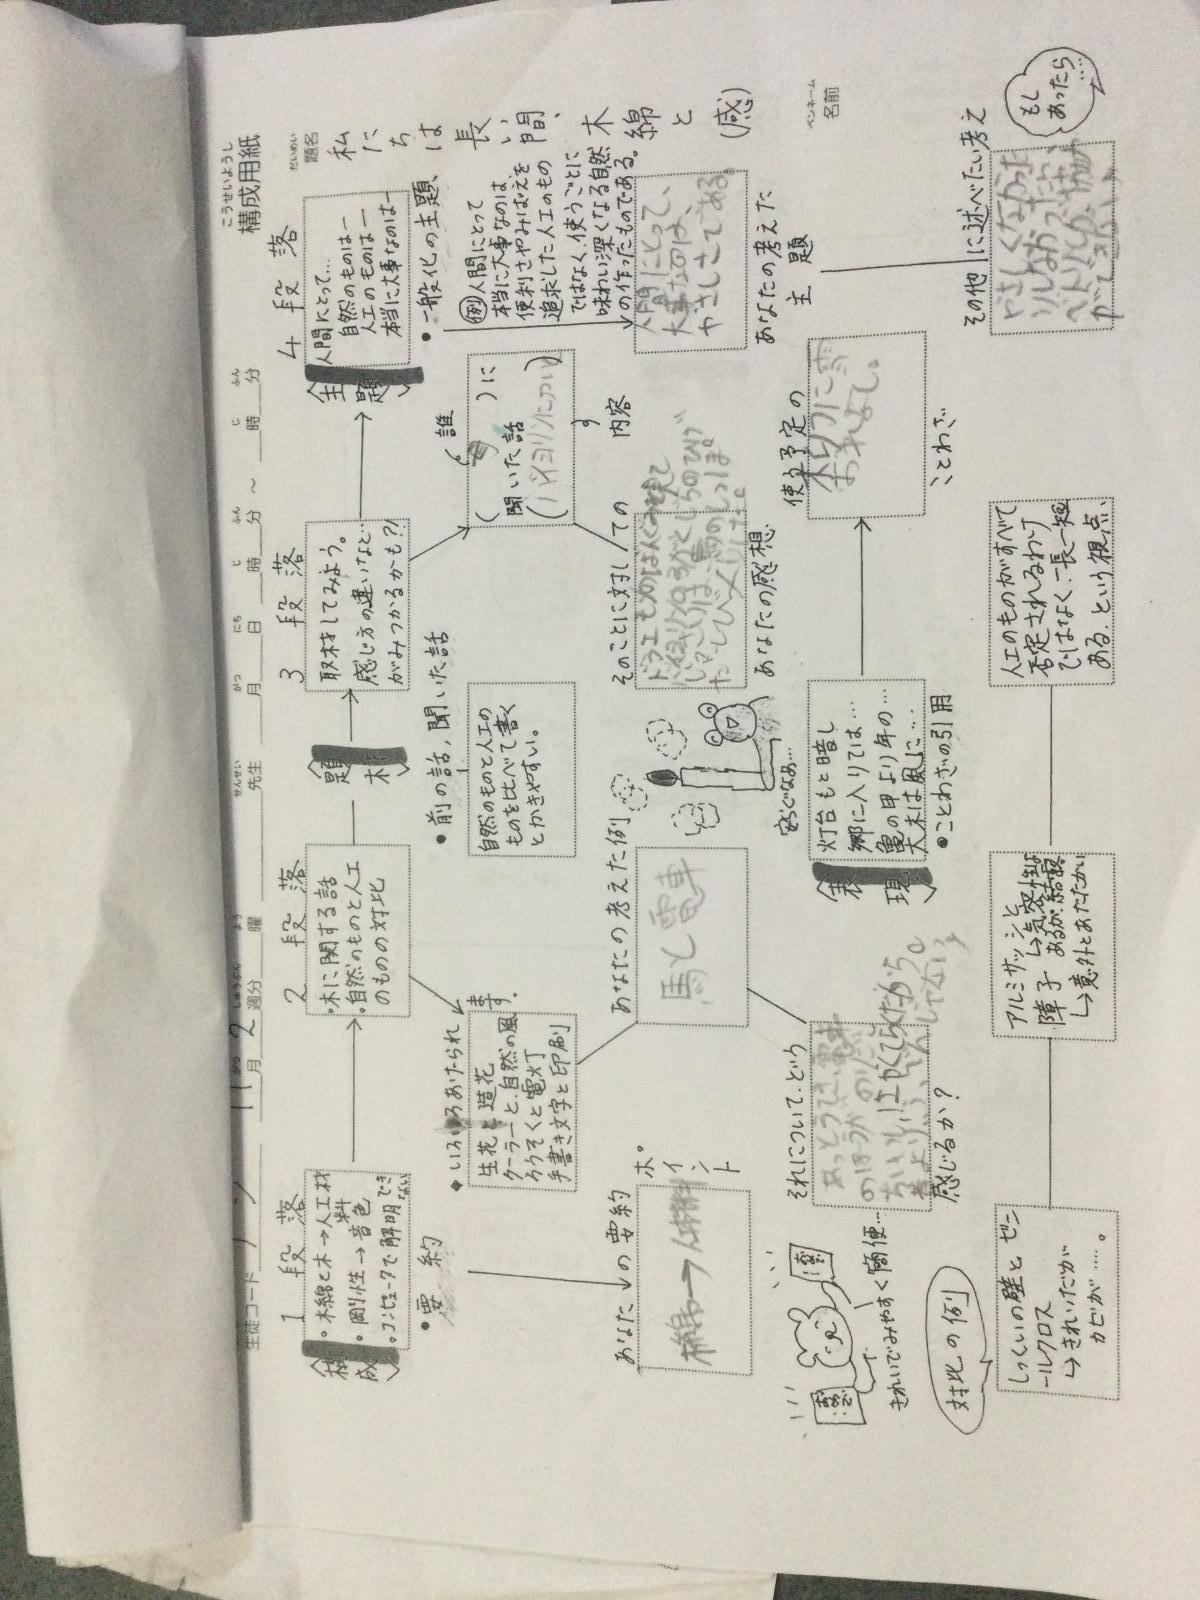 構成用紙
こうせいようし
題名
だいめい
私たちは長い間、木綿と(感)
ペンネーム
名前
生徒コード
11月2週分
しゅうぶん
曜
よう
先生
せんせい
月
がつ
日
にち
時
じ
分
ふん
～
時
じ
分
ふん
1段落
構成
・木綿と木→人工材料
・剛性→音色
・コンピュータで解明できない
●要約
あなたの要約
ポイント
2段落
・木に関する話
・自然のものと人工のものの対比
●いろいろあげられます。
生花と造花
クーラーと自然の風
ろうそくと電灯
手書き文字と印刷
あなたの考えた例
馬と電車
それについて、どう
感じるか?
きれいでみやすく簡便…
題材
3段落
取材してみよう。
感じ方の違いなど…
がみつかるかも?!
●前の話、聞いた話
自然のものと人工の
ものを比べて書く
とかきやすい。
(誰)に
(聞いた話)
内容
そのことに対しての
あなたの感想
表現
灯台もと暗し
郷に入りては…
亀の甲より年の…
大木は風に…
●ことわざの引用
使う予定の
ことわざ
安らぐなぁ…
4段落
主題
人間にとって…
自然のものは―
人工のものは―
本当に大事なのは―
●一般化の主題、
例 人間にとって
本当に大事なのは、
便利さやみばえを
追求した人工のもの
ではなく、使うごとに
味わい深くなる自然
の作ったものである。
人間にとって、
大事なのは、
やさしさである。
あなたの考えた
主題
その他に述べたい考え
もしあったら…
対比の例
しっくいの壁とビニ
ールクロス
↳きれいだが
カビが……。
アルミサッシと
障子 ↳気密性は
あるが結露
↳意外とあたたかい
人工のものがすべて
否定されるわけ
ではなく、一長一短
ある、という視点。